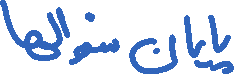 پایان سوالها